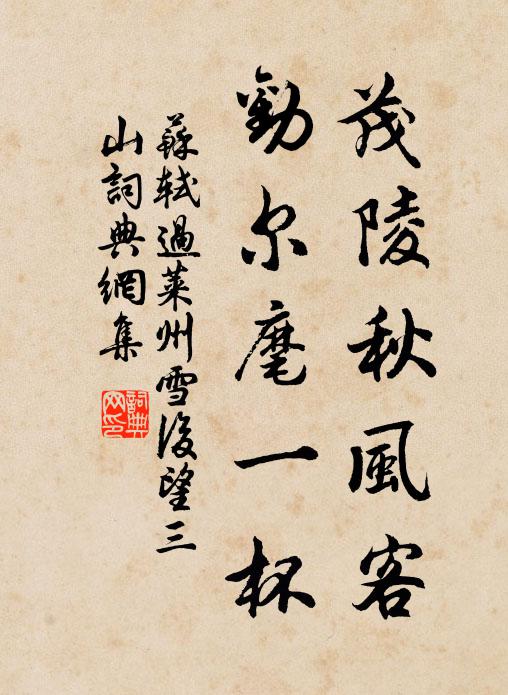 茂陵秋風客
勸尔麾一杯
蘇軾過萊州雪後望三
山詞典網集
詞典
网印